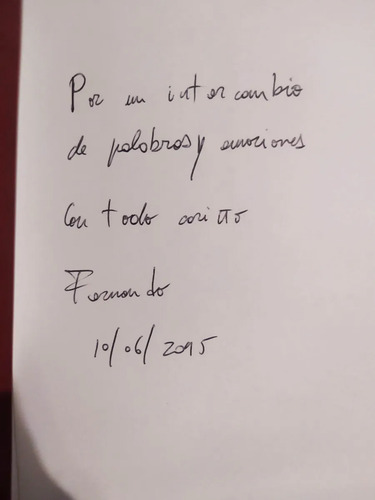 Por un intercambio
de palabras y emociones
Con todo cariño
Fernando
10/06/2015